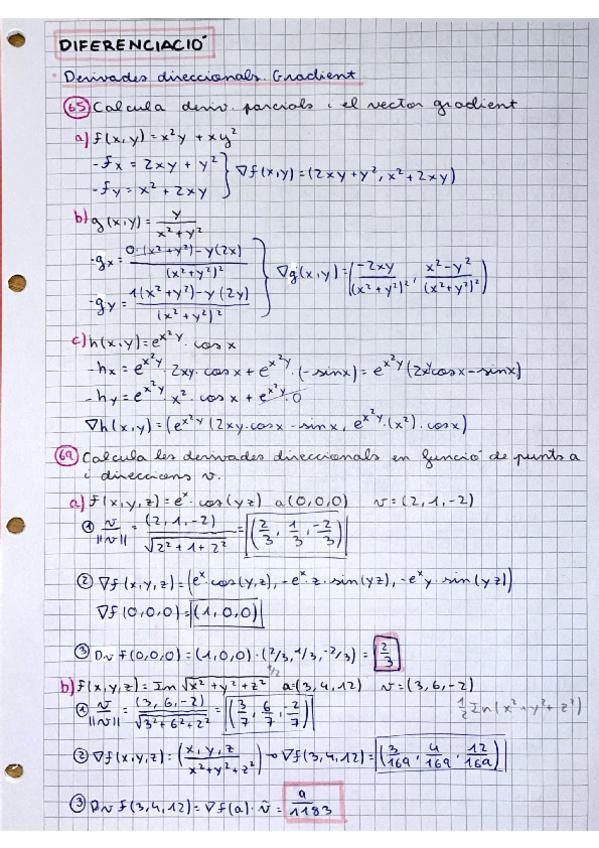 DIFERENCIACIÓ
Derivades direccionals. Gradient
65 Calcula deriv. parcials i el vector gradient
a) f(x,y)=x²y + xy²
-fx = 2xy + y²
-fy = x² + 2xy
} ∇f(x,y)=(2xy+y², x²+2xy)
b) g(x,y)= y/(x²+y²)
-gx= (0·(x²+y²)-y(2x))/(x²+y²)²
-gy= (1(x²+y²)-y(2y))/(x²+y²)²
} ∇g(x,y)=(-2xy/(x²+y²)², (x²-y²)/(x²+y²)²)
c) h(x,y)=e^(x²y)·cosx
-hx = e^(x²y)·2xy·cosx + e^(x²y)·(-sinx)= e^(x²y)(2xycosx-sinx)
-hy = e^(x²y)·x²·cosx + e^(x²y)·0
∇h(x,y)=(e^(x²y)(2xy·cosx-sinx, e^(x²y)·(x²)·cosx)
69 Calcula les derivades direccionals en funció de punts a
i direccions v.
a) f(x,y,z)=e^x·cos(yz) a(0,0,0) v=(2,1,-2)
① v/||v|| = (2,1,-2)/√(2²+1+2²) = (2/3, 1/3, -2/3)
② ∇f(x,y,z)=(e^x·cos(y,z), -e^x·z·sin(yz), -e^x y·sin(yz))
∇f(0,0,0)=(1,0,0)
③ Dv f(0,0,0)=(1,0,0)·(2/3,1/3,-2/3) = 2/3
b) f(x,y,z)=ln √(x²+y²+z²) ^1/2 a=(3,4,12) v=(3,6,-2)
½ ln(x²+y²+z²)
① v/||v|| = (3,6,-2)/√(3²+6²+2²) = (3/7, 6/7, -2/7)
② ∇f(x,y,z)=(x,y,z/x²+y²+z²) → ∇f(3,4,12)=(3/169, 4/169, 12/169)
③ Dv f(3,4,12)=∇f(a)·v̂ = 9/1183